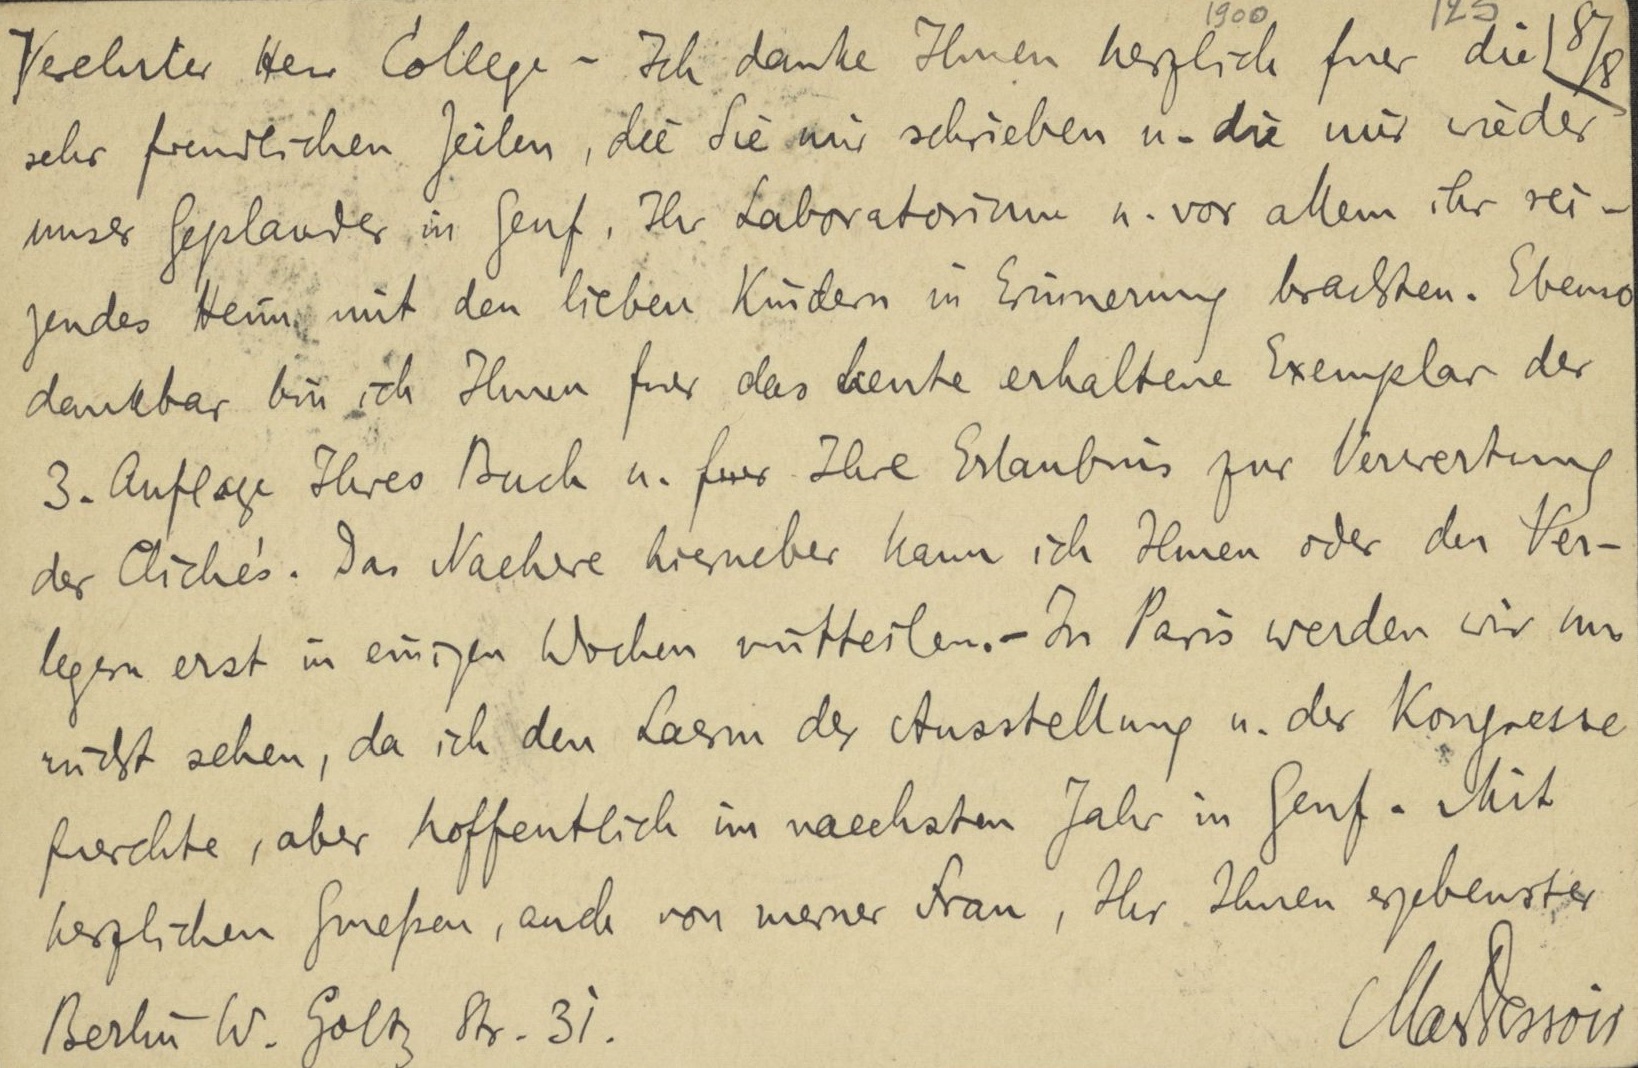 1900 125
Verehrter Herr College - Ich danke Ihnen herzlich fuer die 8/8
sehr freundlichen Zeilen, die Sie mir schrieben u. die mir wieder
unser Geplauder in Genf, Ihr Laboratorium u. vor allem ihr rei-
zendes Heim mit den lieben Kindern in Erinnerung brachten. Ebenso
dankbar bin ich Ihnen fuer das heute erhaltene Exemplar der
3. Auflage Ihres Buch u. fuer Ihre Erlaubnis zur Verwertung
der Clichés. Das Naehere hierueber kann ich Ihnen oder den Ver-
legern erst in einigen Wochen mitteilen. - In Paris werden wir uns
nicht sehen, da ich den Laerm der Ausstellung u. der Kongresse
fuerchte, aber hoffentlich im naechsten Jahr in Genf. Mit
herzlichen Grueßen, auch von meiner Frau, Ihr Ihnen ergebenster
Berlin W. Goltz Str. 31. Max Dessoir